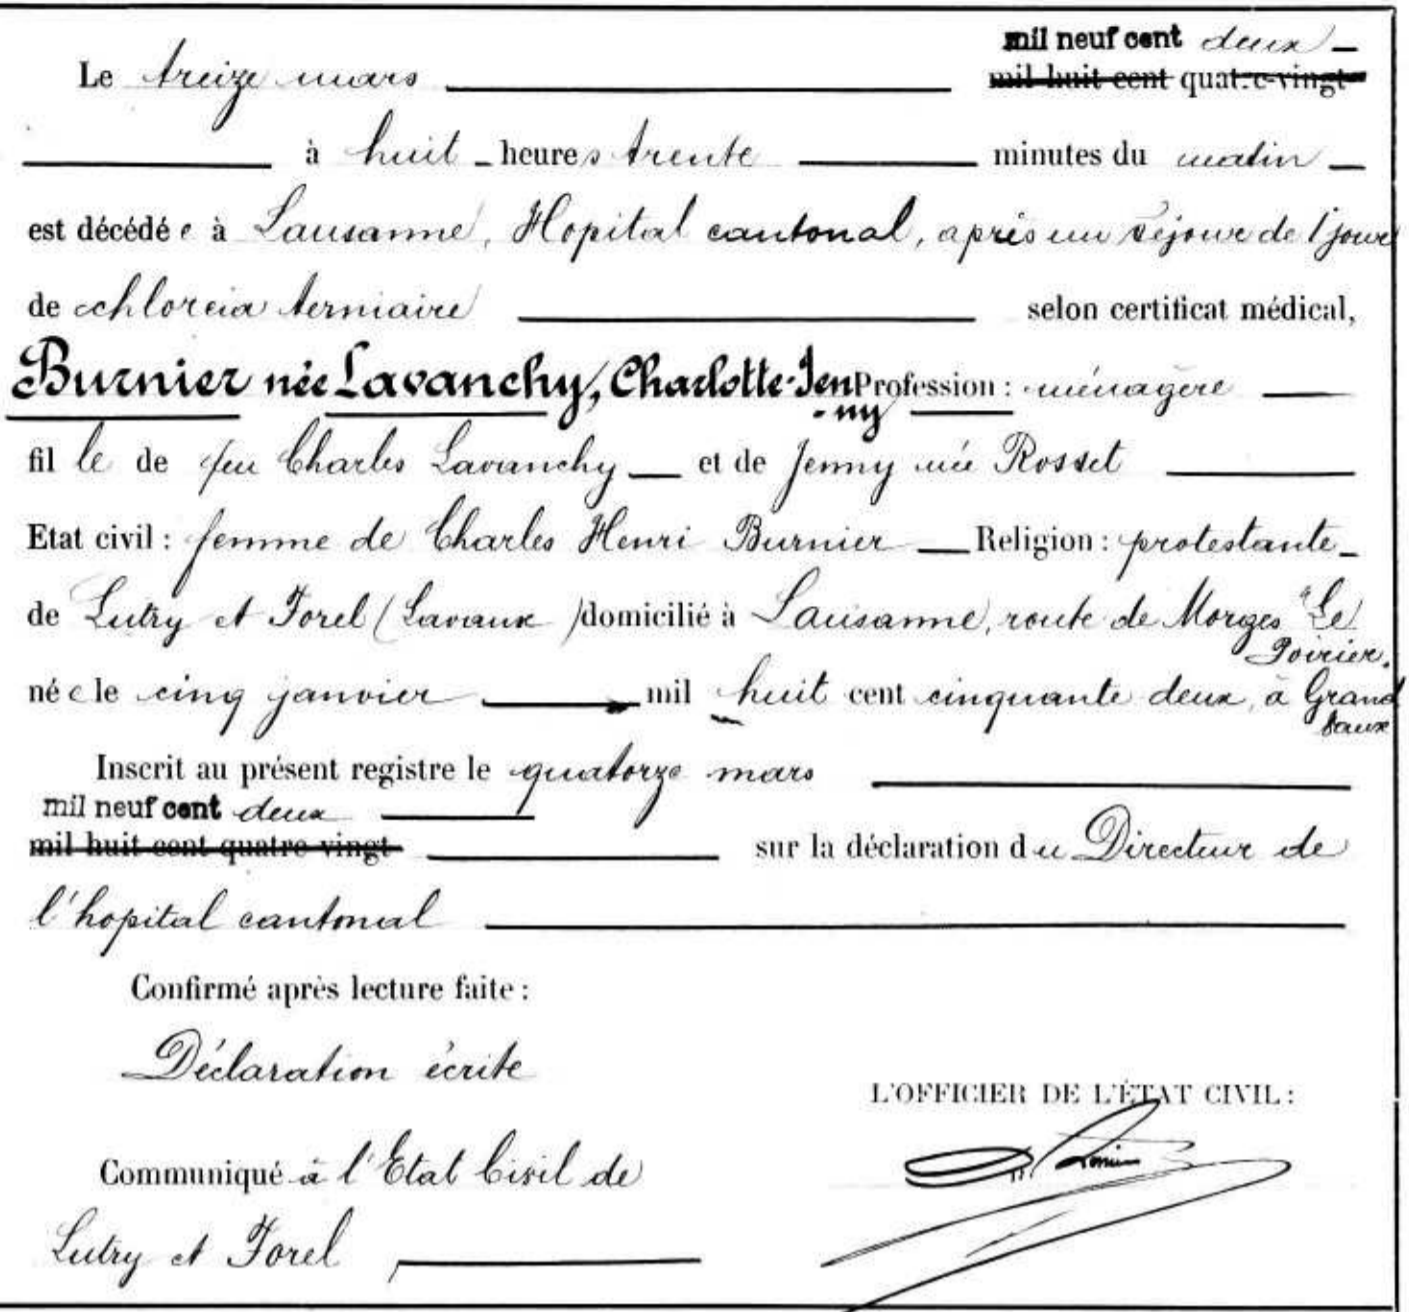 mil neuf cent deux
Le treize mars mil huit cent quatre-vingt
à huit heures trente minutes du matin
est décédée à Lausanne, Hopital cantonal, après un séjour de 1 jour
de selon certificat médical,
Burnier née Lavanchy, Charlotte-Jen Profession : ménagère
-ny
fille de feu Charles Lavanchy et de Jenny née Rosset
Etat civil : femme de Charles Henri Burnier Religion : protestante
de Lutry et Forel (Lavaux) domicilié à Lausanne, route de Morges "Le
Poirier.
née le cinq janvier mil huit cent cinquante deux, à Grand
vaux
Inscrit au présent registre le quatorze mars
mil neuf cent deux
mil huit cent quatre vingt sur la déclaration du Directeur de
l'hopital cantonal
Confirmé après lecture faite :
Déclaration écrite
L'OFFICIER DE L'ÉTAT CIVIL :
Communiqué à l'Etat Civil de
Lutry et Forel